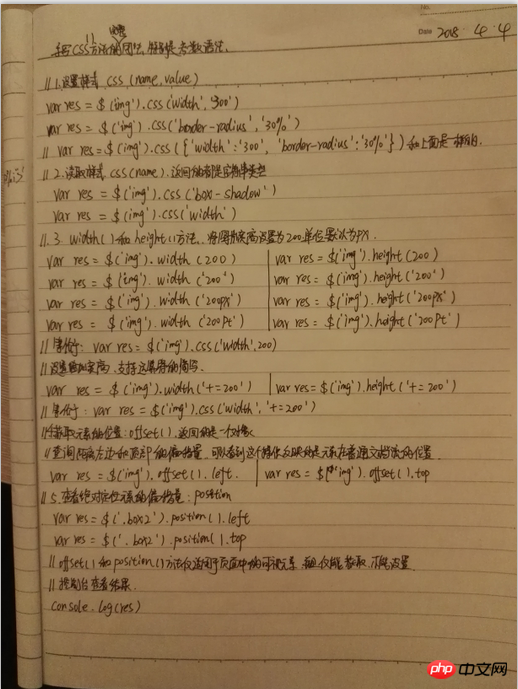 Date 2018 . 4 . 4
// 1.设置样式 css (name, value)
var res = $('img').css('width', '300')
var res = $('img').css('border-radius', '30%')
// var res = $('img').css({'width':'300', 'border-radius':'30%'}) 和上面是一样的.
// 2.读取样式 css(name).返回值都是字符串类型
var res = $('img').css('box-shadow')
var res = $('img').css('width')
// 3. width()和height()方法, 将图片宽高设置为200,单位默认为px.
var res = $('img').width(200) var res = $('img').height(200)
var res = $('img').width('200') var res = $('img').height('200')
var res = $('img').width('200px') var res = $('img').height('200px')
var res = $('img').width('200pt') var res = $('img').height('200pt')
// 等价于: var res = $('img').css('width',200)
// 设置 宽高, 支持运算符的简写.
var res = $('img').width('+=200') var res = $('img').height('+=200')
// 等价于: var res = $('img').css('width', '+=200')
// 获取元素的位置: offset(), 返回的是一个对象
// 查询 左边和顶部的偏移量, 可以看到这个 反映的是元素在普通文档流的位置
var res = $('img').offset().left. var res = $('img').offset().top
// 5.查看绝对定位元素的偏移量: position
var res = $('.box2').position().left
var res = $('.box2').position().top
// offset()和position()方法仅适用于页面中的可见元素, 仅能获取, 不能设置
// 控制台查看结果
console.log(res)
php 中文网